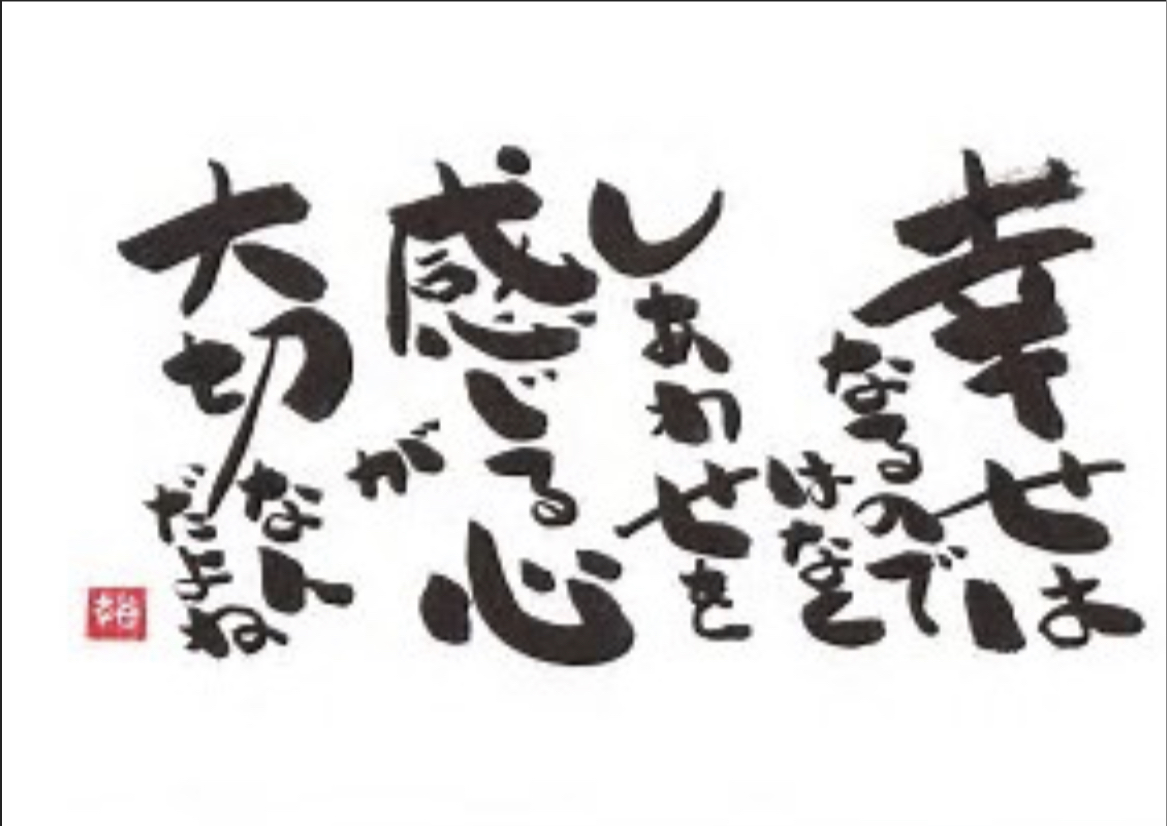 幸せは
なるので
はなく
しあわせを
感じる心
が
大切
なん
だよね